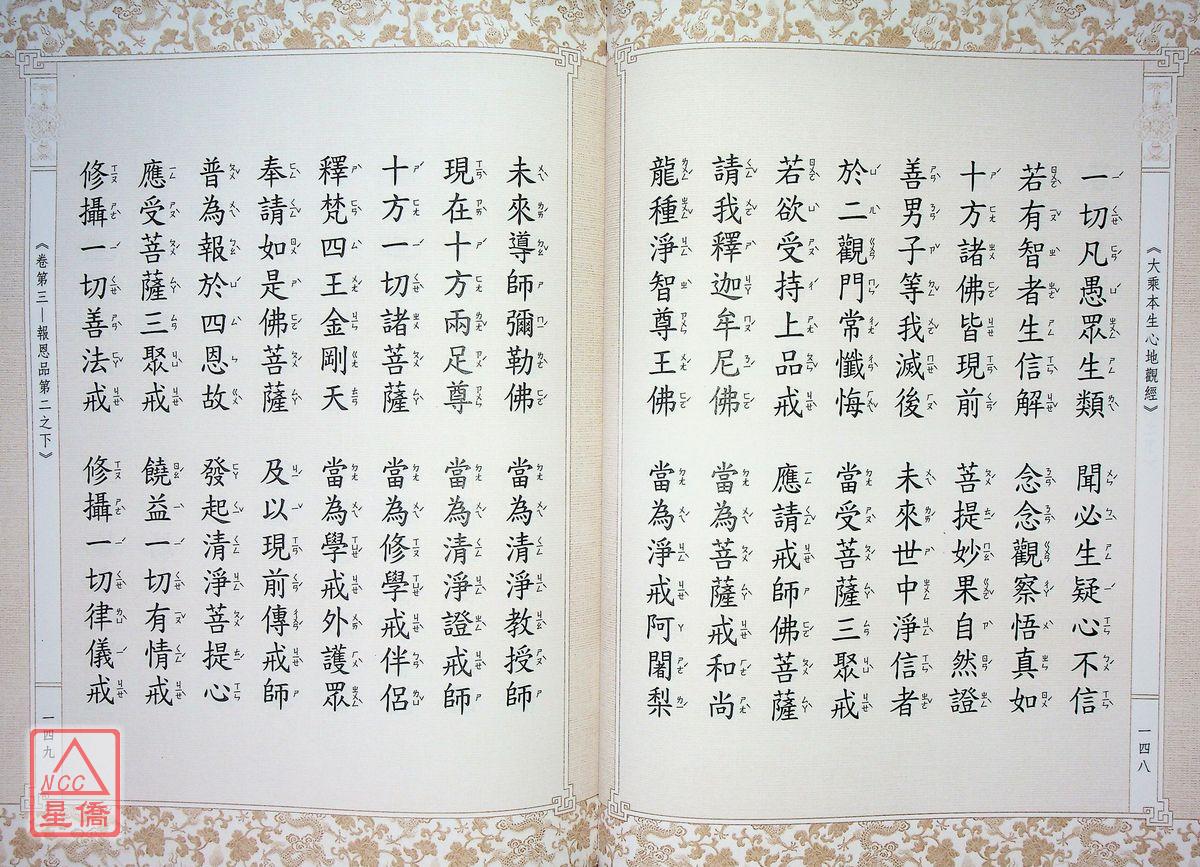 《大乘本生心地觀經》
一切凡愚眾生類　聞必生疑心不信
若有智者生信解　念念觀察悟真如
十方諸佛皆現前　菩提妙果自然證
善男子等我滅後　未來世中淨信者
於二觀門常懺悔　當受菩薩三聚戒
若欲受持上品戒　應請戒師佛菩薩
請我釋迦牟尼佛　當為菩薩戒和尚
龍種淨智尊王佛　當為淨戒阿闍梨
一四八
未來導師彌勒佛　當為清淨教授師
現在十方兩足尊　當為清淨證戒師
十方一切諸菩薩　當為修學戒伴侶
釋梵四王金剛天　當為學戒外護眾
奉請如是佛菩薩　及以現前傳戒師
普為報於四恩故　發起清淨菩提心
應受菩薩三聚戒　饒益一切有情戒
修攝一切善法戒　修攝一切律儀戒
《卷第三—報恩品第二之下》
一四九
NCC
星僑